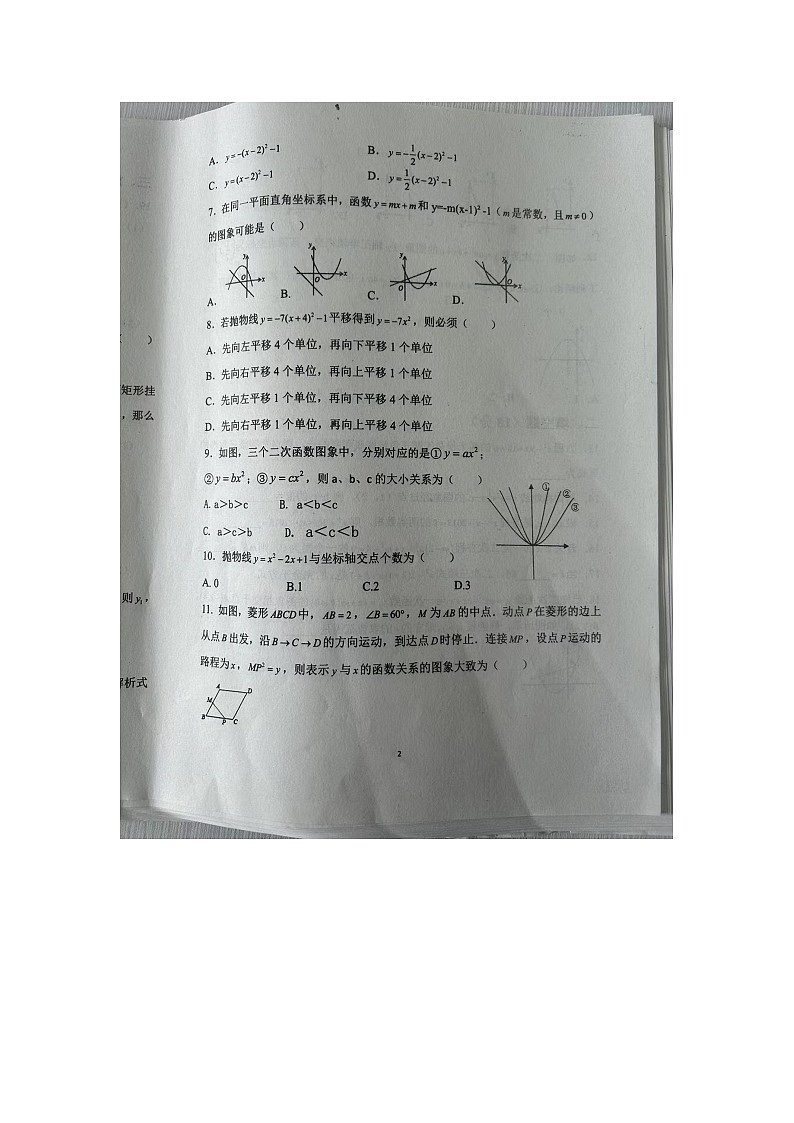 A. y=-(x-2)²-1 B. y=-1/2(x-2)²-1
C. y=(x-2)²-1 D. y=1/2(x-2)²-1
7. 在同一平面直角坐标系中，函数y=mx+m和 y=-m(x-1)² -1（m是常数，且m≠0）
的图象可能是（ ）
A. B. C. D.
8. 若抛物线y=-7(x+4)²-1平移得到y=-7x²，则必须（ ）
A. 先向左平移 4 个单位，再向下平移 1 个单位
B. 先向右平移 4 个单位，再向上平移 1 个单位
C. 先向左平移 1 个单位，再向下平移 4 个单位
D. 先向右平移 1 个单位，再向上平移 4 个单位
9. 如图，三个二次函数图象中，分别对应的是①y=ax²；
②y=bx²；③y=cx²，则 a、b、c 的大小关系为（ ）
A. a＞b＞c B. a＜b＜c
C. a＞c＞b D. a＜c＜b
① ② ③
10. 抛物线y=x²-2x+1与坐标轴交点个数为（ ）
A. 0 B.1 C.2 D.3
11. 如图，菱形ABCD中，AB=2，∠B=60°，M为AB的中点．动点P在菱形的边上
从点B出发，沿B→C→D的方向运动，到达点D时停止．连接MP，设点P运动的
路程为x，MP²=y，则表示y与x的函数关系的图象大致为（ ）
A D
M
B P C
2
）
矩形挂
，那么
则y₁，
解析式